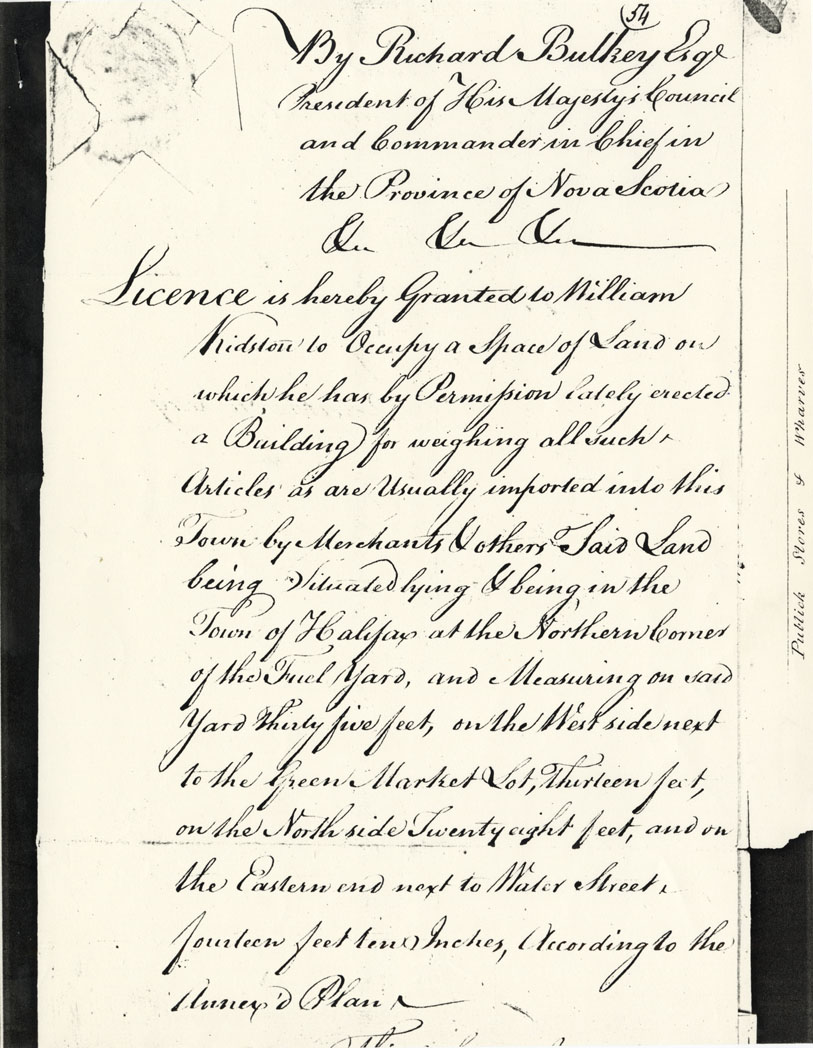 54
By Richard Bulkey Esqr
President of His Majesty's Council
and Commander in Chief in
the Province of Nova Scotia
&c &c &c
Licence is hereby Granted to William
Kidston to Occupy a Space of Land on
which he has by Permission lately erected
a Building for weighing all such
Articles as are Usually imported into this
Town by Merchants & others Said Land
being Situated lying & being in the
Town of Halifax at the Northern Corner
of the Fuel Yard, and Measuring on said
Yard Thirty five feet, on the West side next
to the Green Market Lot, Thirteen feet,
on the North side Twenty eight feet, and on
the Eastern end next to Water Street
fourteen feet ten Inches, According to the
Annex'd Plan
Publick Stores & Wharves